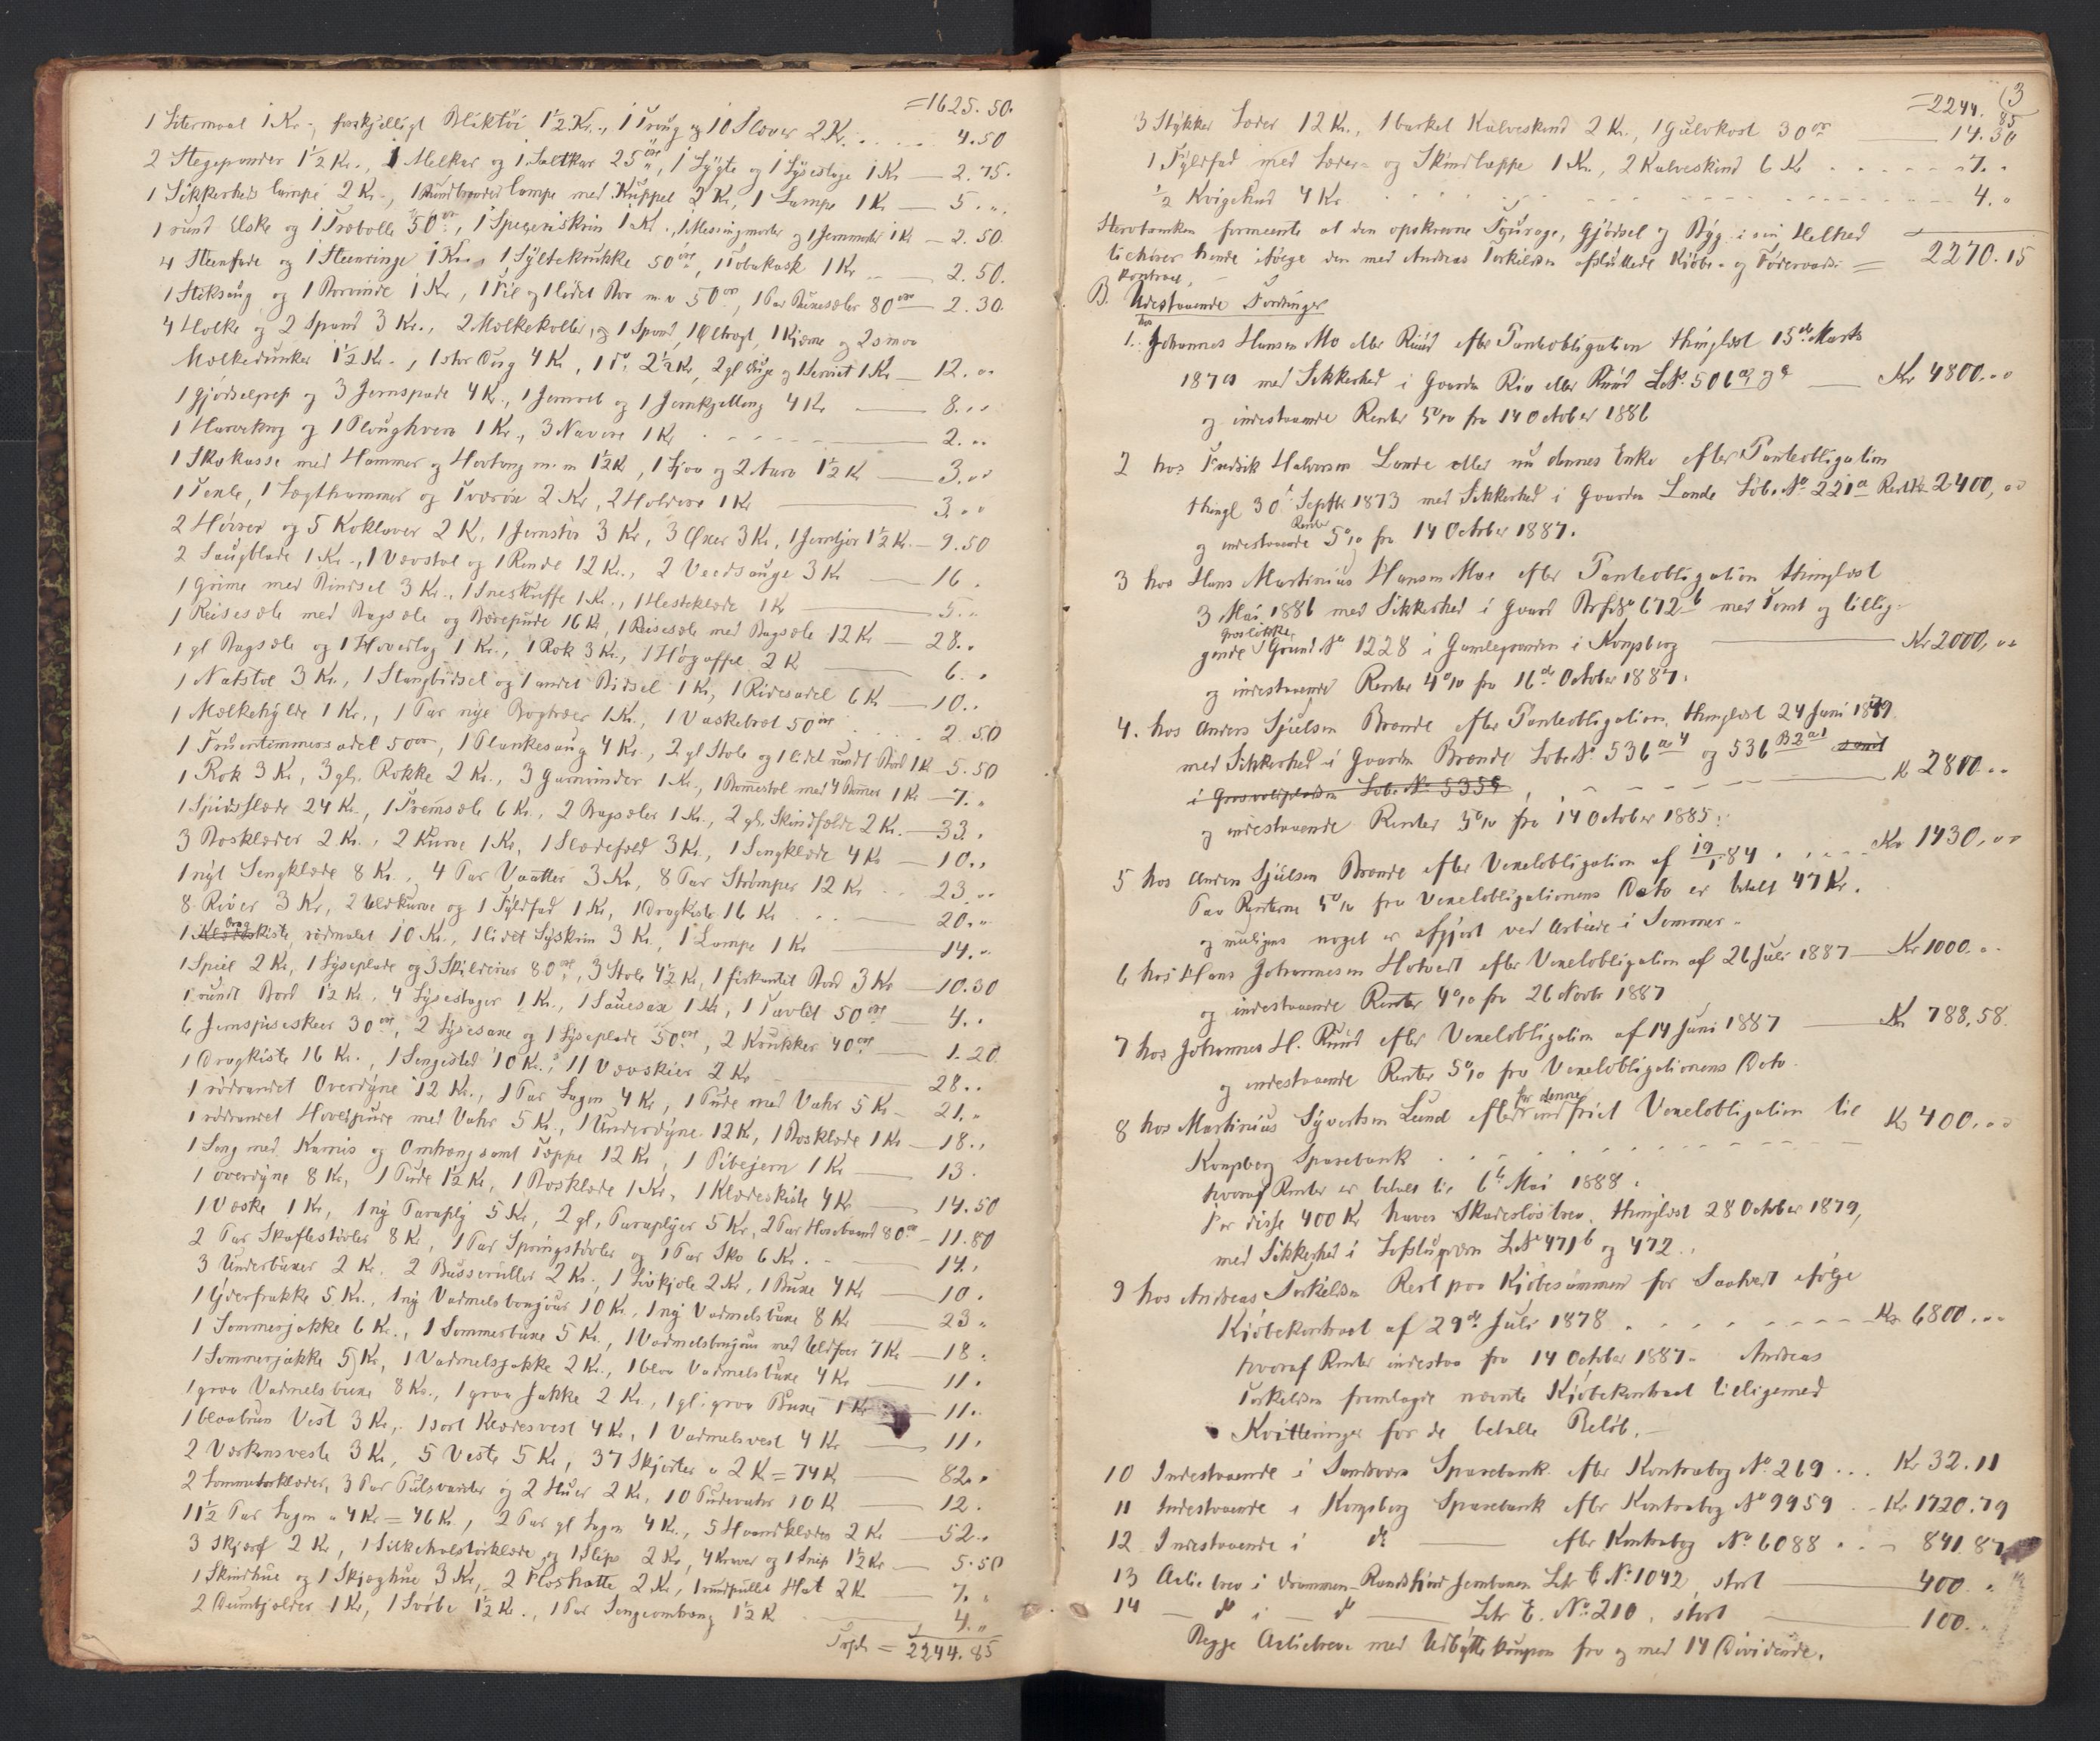 =1625.50.
1 Litermaal 1 Kr., forskjelligt Bliktøi 1½ Kr., 1 Traug og 10 Slever 2 Kr. . . . . . 4.50
2 Stegepander 1½ Kr., 1 Melkar og 1 Saltkar 25 øre, 1 Lygte og 1 Lysestage 1 Kr — 2.75.
1 Sikkerheds lampe 2 Kr., 1 lampe med Kuppel 2 Kr., 1 Lampe 1 Kr — 5.„
1 rund Æske og 1 Træbolle 50 øre, 1 Speceriskrin 1 Kr., 1 Messingmorter og 1 Jernmorter 1 Kr — 2.50.
4 Steenfade og 1 Steenringe 1 Kr., 1 Syltekrukke 50 øre, 1 Tobakask 1 Kr — 2.50.
1 Stiksaug og 1 Borvinde 1 Kr, 1 Fil og 1 lidet Bor m.v 50 øre, 1 Par Buxeseler 80 øre — 2.30.
4 Holke og 2 Spand 3 Kr., 2 Mølkekoller, og 1 Spand, 1 Øltragt, 1 Kjerne og 2 smaa
Mælkedunker 1½ Kr., 1 stor Dug 4 Kr, 1 do. 2½ Kr, 2 gl Duge og 1 Serviet 1 Kr — 12.„
1 Gjødselgreb og 3 Jernspade 4 Kr., 1 Jernreb og 1 Jernkjetting 4 Kr — 8.„
1 Harvekrog og 1 Ploughvers 1 Kr., 3 Navere 1 Kr — 2.„
1 Skokasse med Hammer og Hovtang m.m 1½ K, 1 Ljaa og 2 1½ K — 3.„
1 Texle, 1 Lægthammer og Tværøx 2 Kr, 2 1 Kr — 3.„
2 Høvrer og 5 Koklaver 2 K, 1 Jernstør 3 Kr, 3 Øxer 3 Kr, 1 1½ K. — 9.50
2 Saugblade 1 Kr., 1 Vævstol og 1 Rende 12 Kr., 2 Vedsauge 3 Kr — 16.
1 Grime med Bindsel 3 Kr., 1 Sneskuffe 1 Kr., 1 Hesteklæde 1 Kr — 5.„
1 Reisesele med Bagsele og Bærepude 16 Kr, 1 Reisesele med Bagsele 12 Kr — 28.„
1 gl Bagsele og 1 Hovedlag 1 Kr., 1 Rok 3 Kr., 1 Høgaffel 2 K — 6.„
1 Natstol 3 Kr., 1 Stangbidsel og 1 andet Bidsel 1 Kr, 1 Ridesadel 6 Kr — 10.„
1 Mælkehylde 1 Kr., 1 Par nye Bogtræer 1 Kr., 1 Vaskebræt 50 øre . . . . 2.50
1 Fruentimmersadel 50 øre, 1 Plankesaug 4 Kr., 2 gl Stole og 1 lidet rundt Bord 1 K — 5.50
1 Rok 3 Kr, 3 gl. Rokke 2 Kr., 3 Garnvinder 1 Kr., 1 Bomestol med 4 Bomer 1 Kr — 7.„
1 Spidsslæde 24 Kr., 1 Fremsele 6 Kr., 2 Bagseler 1 Kr., 2 gl. Skindfælde 2 K. — 33.
3 Bosklæder 2 Kr., 2 Kurve 1 Kr, 1 Slædefæld 3 Kr., 1 Sengklæde 4 Kr — 10.„
1 nyt Sengklæde 8 Kr., 4 Par Vaatter 3 Kr, 8 Par Strømper 12 Kr . . — 23.„
8 River 3 Kr, 2 Uldkurve og 1 Fyldfad 1 Kr, 1 Dragkiste 16 Kr . . . — 20.„
Drag
1 Klædekiste, rødmalet 10 Kr., 1 lidet Syskrin 3 Kr, 1 Lampe 1 Kr — 14.„
1 Speil 2 Kr, 1 Lyseplade og 3 Skilderier 80 øre, 3 Stole 4½ Kr, 1 firkantet Bord 3 Kr — 10.30
1 rundt Bord 1½ Kr., 4 Lysestager 1 Kr., 1 Sauesax 1 Kr, 1 Tavlet 50 øre — 4.„
6 Jernspiseskeer 30 øre, 2 Lysesaxe og 1 Lyseplade 50 øre, 2 Krukker 40 øre — 1.20
1 Dragkiste 16 Kr., 1 Sengested 10 Kr., 11 Vævskier 2 Kr — 28.„
1 rødrandet Overdyne 12 Kr., 1 Par Lagen 4 Kr, 1 Pude med Vahr 5 Kr — 21.„
1 rødrandet Hovedpude med Vahr 5 Kr., 1 Underdyne 12 Kr, 1 Bosklæde 1 Kr — 18.„
1 Seng med Karnis og Omhæng samt Tæppe 12 Kr, 1 Pibejern 1 Kr — 13.
1 overdyne 8 Kr, 1 Pude 1½ Kr, 1 Bosklæde 1 Kr, 1 Klædeskiste 4 Kr — 14.50
1 Væske 1 Kr, 1 ny Paraply 5 Kr, 2 gl. Paraplyer 5 Kr, 2 Par Hosebaand 80 øre — 11.80
2 Par Skaftestøvler 8 Kr, 1 Par Springstøvler og 1 Par Sko 6 Kr. — 14.„
3 Underbuxer 2 Kr. 2 Busseruller 2 Kr., 1 Livkjole 2 Kr, 1 Buxe 4 Kr — 10.
1 Yderfrakke 5 Kr., 1 ny Vadmelsbonjour 10 Kr., 1 ny Vadmelsbuxe 8 Kr — 23.
1 Sommerjakke 6 Kr., 1 Sommerbuxe 5 Kr., 1 Vadmelsbonjour med Uldfoer 7 Kr — 18.
1 Sommerjakke 5 Kr, 1 Vadmelsjakke 2 Kr., 1 blaa Vadmelsbuxe 4 Kr — 11.
1 graa Vadmelsbuxe 8 Kr., 1 graa Jakke 2 Kr., 1 gl. graa Buxe 1 Kr — 11.„
1 blaabrun Vest 3 Kr., 1 sort Klædesvest 4 Kr, 1 Vadmelsvest 4 Kr — 11.
2 Værkensveste 3 Kr, 5 Veste 5 Kr, 37 Skjorter a 2 K = 74 K — 82.„
2 Sommetørklæder, 3 Par Pulsvanter og 2 Huer 2 Kr, 10 Pudevahr 10 K — 12.
11½ Par Lagen a 4 Kr = 46 Kr., 2 Par gl Lagen 4 Kr., 5 Haandklæder 2 Kr — 52.„
3 Skjærf 2 Kr, 1 Silkehalstørklæde og 1 Slips 2 Kr, 4 Kraver og 1 Snip 1½ Kr — 5.50
1 Skindhue og 1 Skjæghue 3 Kr, 2 Floshatte 2 Kr, 1 rundpullet Hat 2 K — 7.„
2 Dumbjælder 1 Kr, 1 Svøbe 1½ Kr., 1 Par Sengeombæng 1½ K — 4.„
= 2244.85
(3
=2244.85
3 Stykker Læder 12 Kr., 1 barket Kalveskind 2 Kr., 1 Gulvkost 30 øre — 14.30
1 Fyldfad med Læder- og Skindlappe 1 Kr., 2 Kalveskind 6 Kr . . . . — 7.„
½ Kvigehud 4 Kr — 4.„
formeente at den opskrevne Fourage, Gjødsel og Byg i sin Helhed
tilhører hende ifølge den med Andreas Torkildsen afsluttede Kjøbe- og Føderaads- = 2270.15
kontract,
B. Udestaaende Fordringer
hos
1. Johannes Hansen Mo eller Ruud efter Panteobligation thinglæst 15de Marts
187 med Sikkerhed i Gaarden Rio eller Ruud L.№ 506 — Kr 4800.„
og indestaaende Renter 5% fra 14 October 1886
2 hos Fredrik Halvorsen Lande eller nu dennes Enke efter Panteobligation
thingl 30 Septbr 1873 med Sikkerhed i Gaarden Lande Løb.№ 221a Rest Kr 2400,„
og indestaaende Renter 5% fra 14 October 1887.
3 hos Hans Martinius Hansen Moe efter Panteobligation thinglæst
3 Mai 1886 med Sikkerhed i Gaard Brf№ 672b med Tomt og tillig-
græsløkke,
gende Grund № 1228 i Gamlegrænden i Kongsberg — Kr 2000,„
og indestaaende Renter 4% fra 16de October 1887.
4. hos Anders Sjulsen Brænde efter Panteobligation, thinglæst 24 Juni 1879
med Sikkerhed i Gaarden Brænde Løb№ 536 a4 og 536 B2a1 samt
i Løb.№ 535 — Kr 2800.„
og indestaaende Renter 5% fra 14 October 1885.
5 hos Anders Sjulsen Brænde efter Vexelobligation af 19/1 84 . . . Kr 1430.„
Paa Renterne 5% fra Vexelobligationens Dato er betalt 47 Kr.
og muligens noget er afgjort ved Arbeide i Sommer.
6 hos Hans Johannesen Hotvedt efter Vexelobligation af 26 Juli 1887 — Kr 1000.„
og indestaaende Renter 4% fra 26 Novbr 1887
7 hos Johannes H. Ruud efter Vexelobligation af 14 Juni 1887 — Kr 788,58.
og indestaaende Renter 5% fra Vexelobligationens Dato.
for denne
8 hos Martinius Syvertsen Lund efter indfriet Vexelobligation til Kr 400.„
Kongsberg Sparebank . . . .
hvoraf Renter er betalt til 6te Mai 1888.
For disse 400 Kr haves Skadesløsbrev, thinglæst 28 October 1879,
med Sikkerhed i L№ 471b og 472.
9 hos Andreas Torkildsen Rest paa Kjøbesummen for Saatvedt ifølge
Kjøbekontract af 29de Juli 1878 . . . . — Kr 6800.„
hvoraf Renter indestaa fra 14 October 1887. Andreas
Torkildsen fremlagde nævnte Kjøbekontract tilligemed
Kvitteringer for de betalte Beløb.
10 Indestaaende i Sandsværs Sparebank efter Kontrabog № 269 . . . Kr 32.11
11 Indestaaende i Kongsberg Sparebank efter Kontrabog № 9959 . . Kr 1720.79
12 Indestaaende i do — efter Kontrabog № 6088 . . — 841.87
13 Actiebrev i Drammen-Randsfjord Jernbanen Litr C №1042, stort — 400.„
14 — do i — do — Litr E. №210, stort — 100.„
Begge Actiebreve med Udbyttekoupon fra og med 14 Dividende.